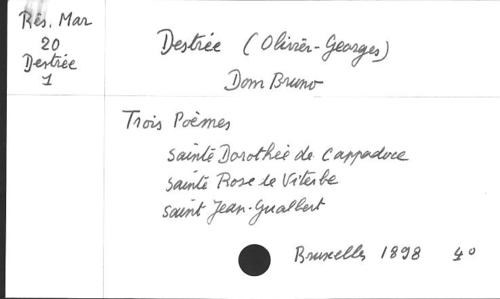 Rés. Mar
20
Destrée
1
Destrée (Olivier-Georges)
Dom Bruno
Trois Poèmes
Sainte Dorothée de Cappadoce
Sainte Rose de Viterbe
Saint Jean-Gualbert
Bruxelles 1898 4°